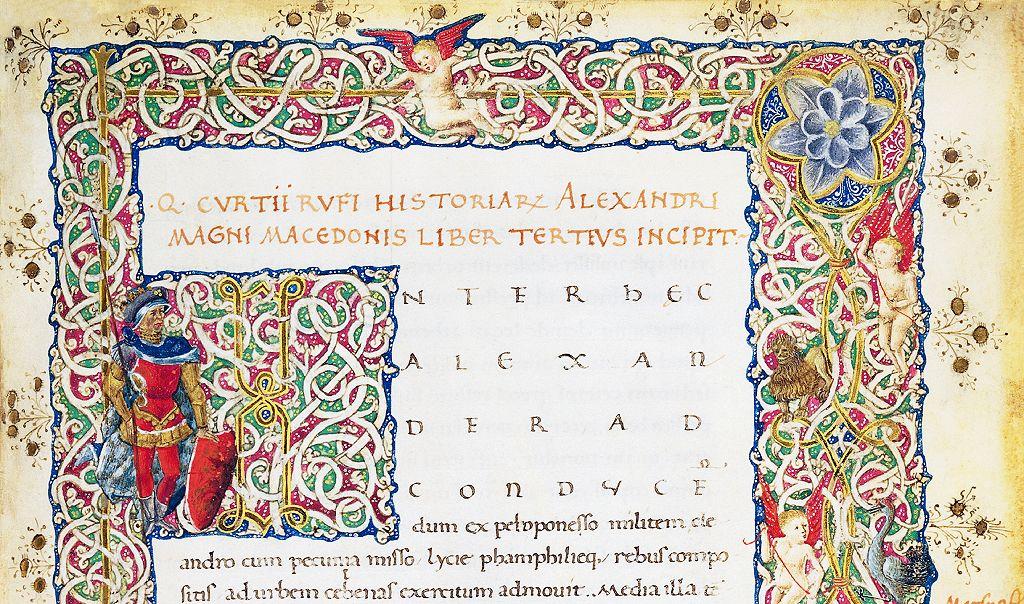 ·Q· CVRTII RVFI HISTORIARꝜ ALEXANDRI
MAGNI MACEDONIS LIBER TERTIVS INCIPIT·
INTER hEC
ALEXAN
DER AD
CONDVCE
dum ex peloponesso militem cle
andro cum pecunia misso lycie phamphilieq, rebus compo
sitis ad urbem celenas exercitum admouit. Media illa te